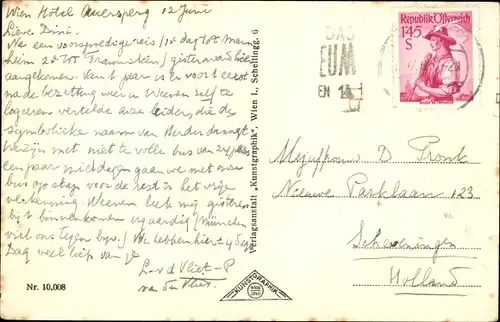 Wien Hotel Auersperg 12 Juni
Lieve Dini.
Na een voorspoedige reis (1e dag tot Mannheim 2e tot Traunstein) gisteravond hier
aangekomen. Vant jaar is er voort eerst
na de bezetting weer in Weenen zelf te
logeeren vertelde onze leider, die de
symbolieke naam van Herder draagt
We zijn met niet te volle bus van
een paar middagen gaan we met onze
bus op stap voor de rest is het vrije
verkenning. Weenen leek mij gisteren
bij t binnenkomen erg aardig (München
viel ons tegen bijv.) We hebben hier ± 4 dgn
Dag veel liefs van je
L. v d Vliet - P
van der Vliet.
Nr. 10.008
Verlagsanstalt „Kunstgraphik“, Wien I., Schellingg. 6
KUNSTGRAPHIK
DAS
EUM
EN 1
Republik Österreich
1.45
S
Mejuffrouw D Pronk
Nieuwe Parklaan 123
Scheveningen
Holland